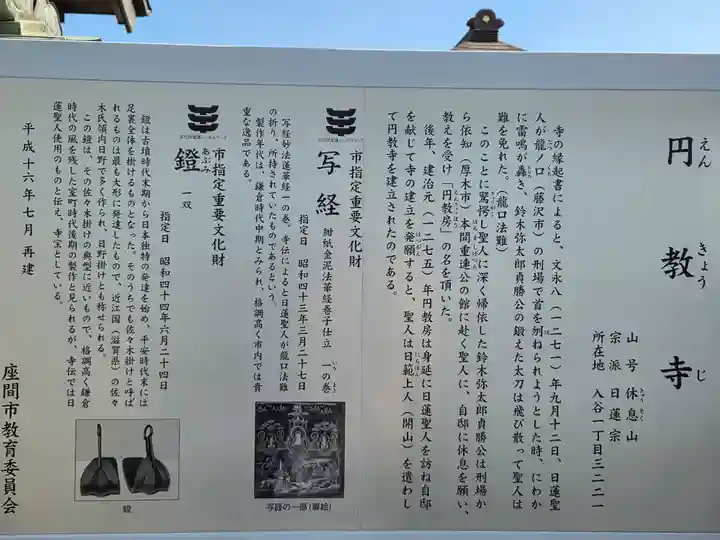 円教寺
えんきょうじ
山号 休息山
宗派 日蓮宗
所在地 入谷一丁目三二二一
寺の縁起書によると、文永八(一二七一)年九月十二日、日蓮聖
人が龍ノ口(藤沢市)の刑場で首を刎ねられようとした時、にわか
に雷鳴が轟き、鈴木弥太郎貞勝公の鍛えた太刀は飛び散って聖人は
難を免れた。(龍口法難)
このことに驚愕し聖人に深く帰依した鈴木弥太郎貞勝公は刑場か
ら依知(厚木市)本間重連公の館に赴く聖人に、自邸に休息を願い、
教えを受け「円教房」の名を頂いた。
後年、建治元(一二七五)年円教房は身延に日蓮聖人を訪ね自邸
を献じて寺の建立を発願すると、聖人は日範上人(開山)を遣わし
て円教寺を建立されたのである。
市指定重要文化財
写経 紺紙金泥法華経巻子仕立 一の巻
指定日 昭和四十三年三月二十七日
写経妙法蓮華経一の巻。寺伝によると日蓮聖人が龍口法難
の折り、所持されていたものであるという。
製作年代は、鎌倉時代中期とみられ、格調高く市内では貴
重な逸品である。
写経の一部(扉絵)
市指定重要文化財
鐙 一双
あぶみ
指定日 昭和四十四年六月二十四日
鐙は古墳時代末期から日本独特の発達を始め、平安時代末には
足裏全体を掛けるものとなった。そのうちでも佐々木掛けと呼ば
れるものは最も大形に発達したもので、近江国(滋賀県)の佐々
木氏領内日野で多く作られ、日野掛けとも称せられる。
この鐙は、その佐々木掛けの典型に近いもので、格調高く鎌倉
時代の風を残した室町時代後期の製作と見られるが、寺伝では日
蓮聖人使用のものと伝え、寺宝としている。
鐙
平成十六年七月 再建
座間市教育委員会